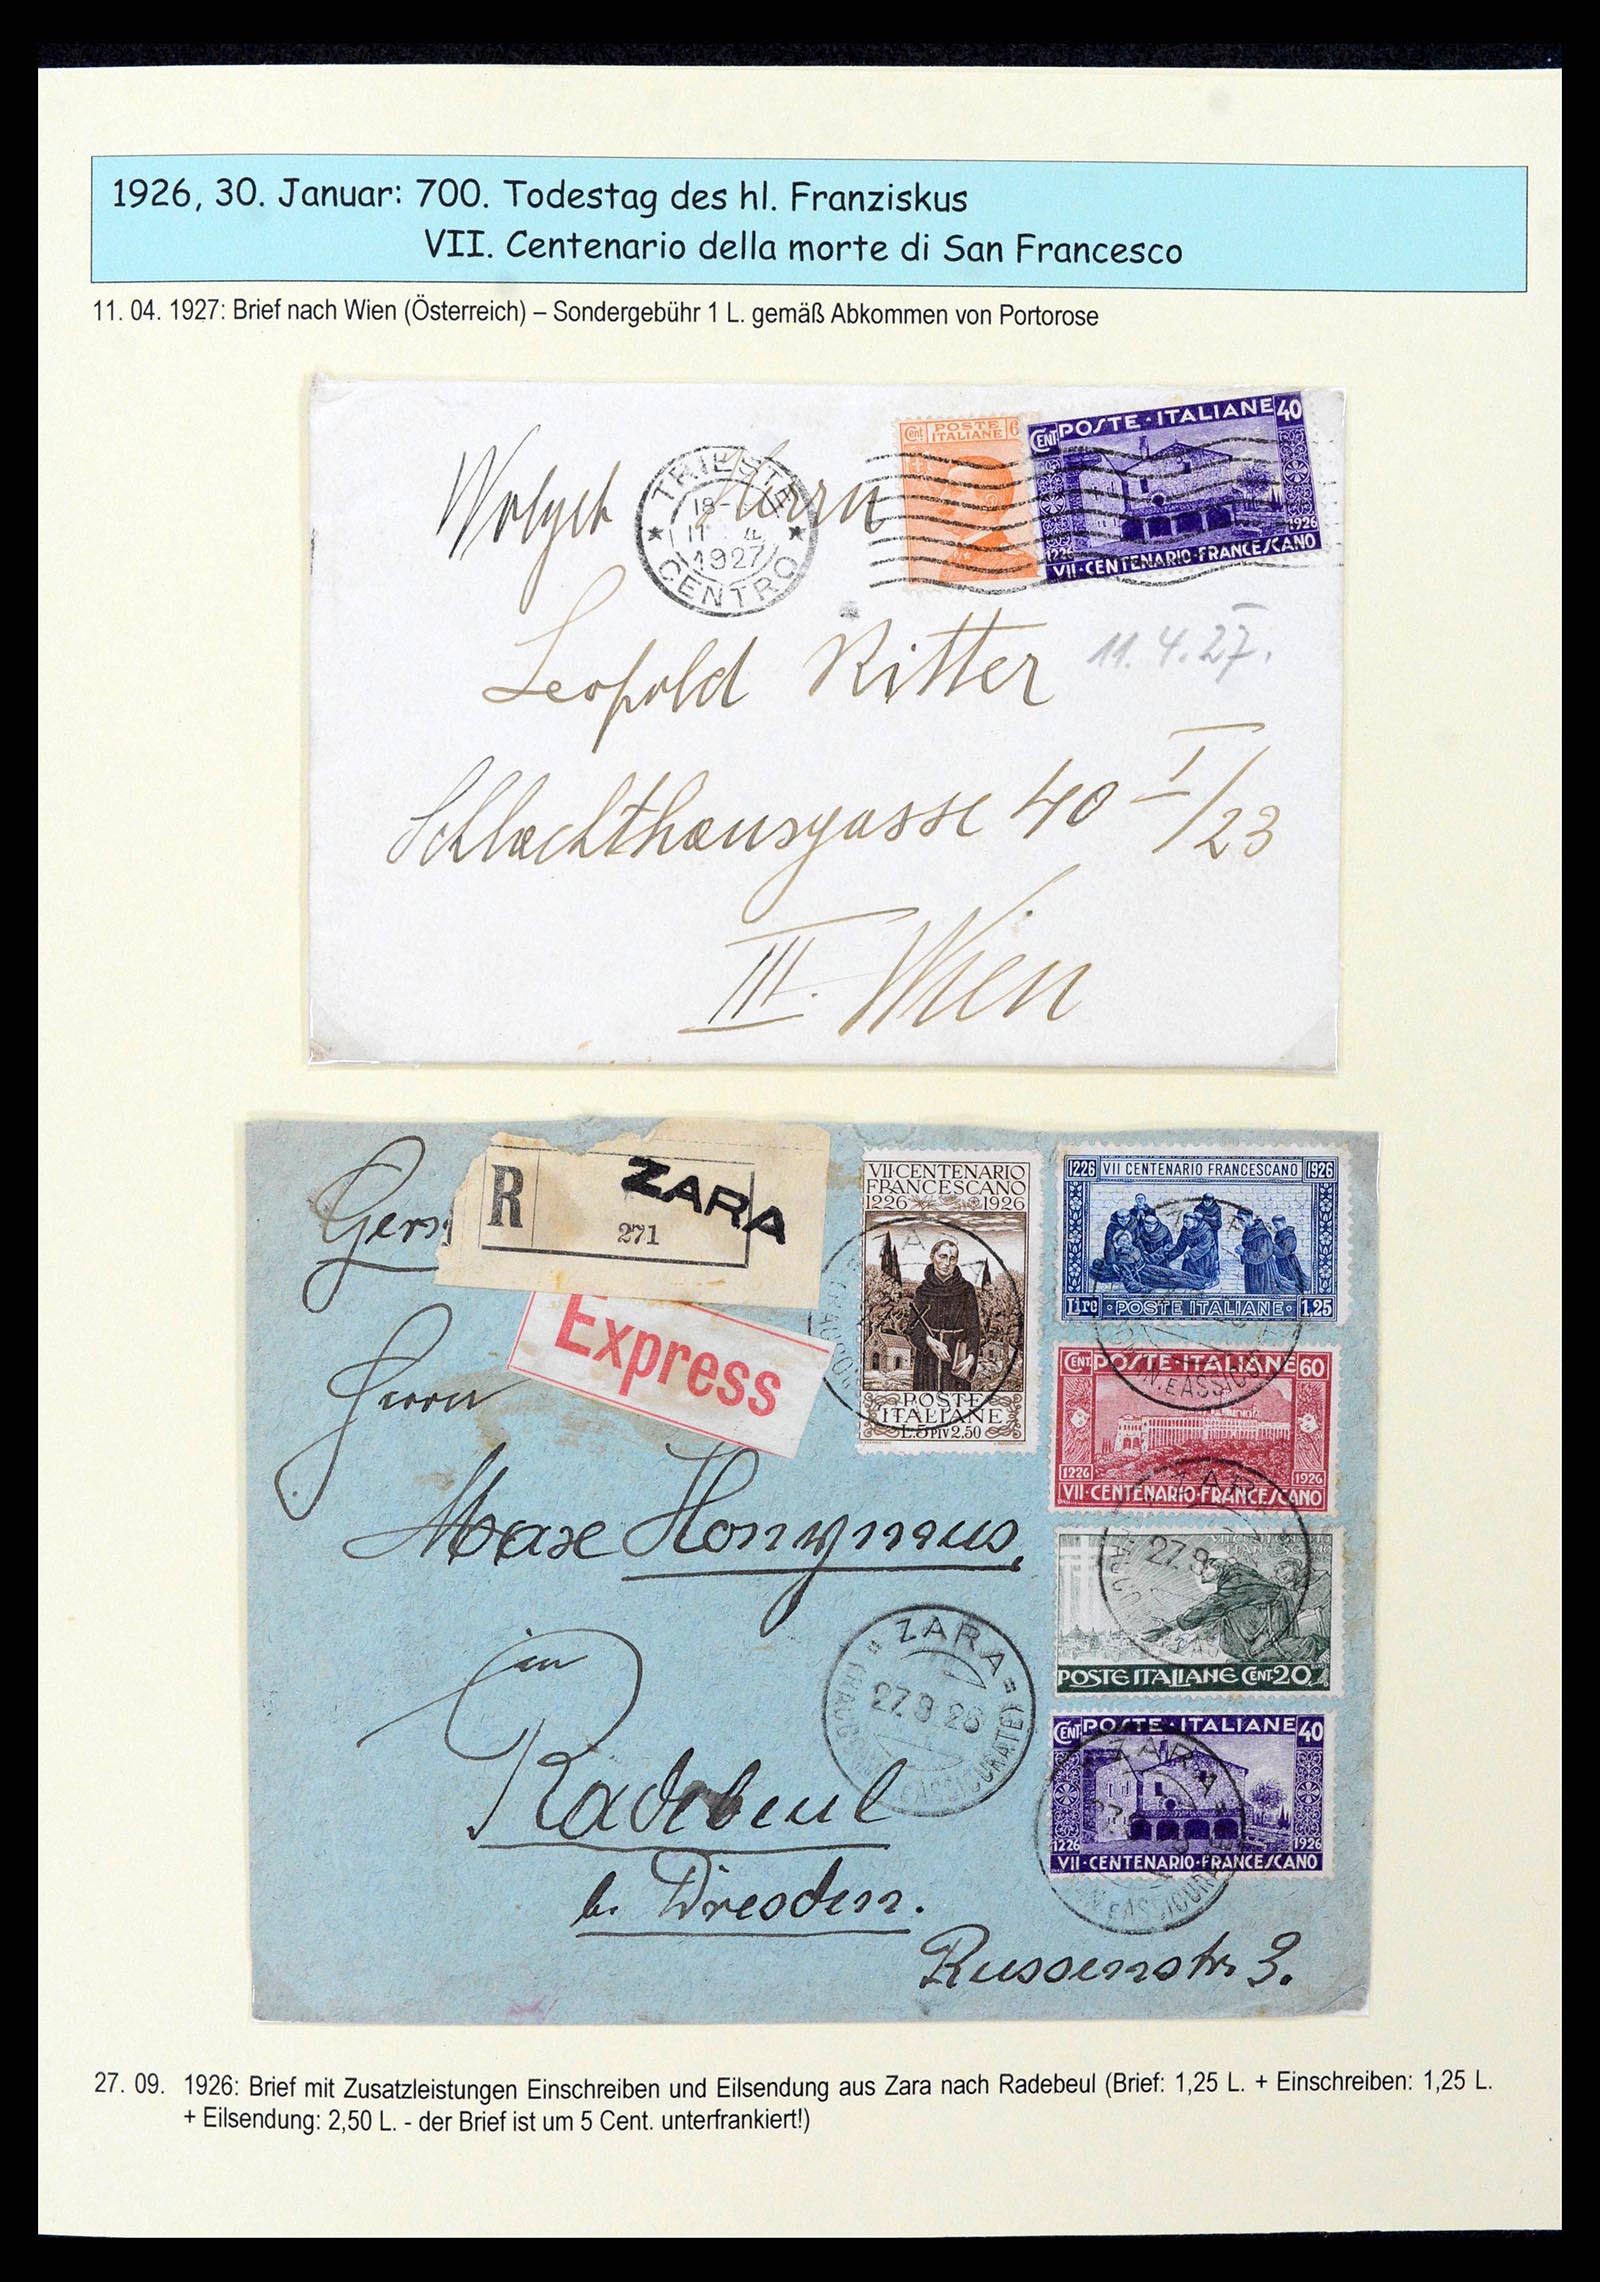 1926, 30. Januar: 700. Todestag des hl. Franziskus
VII. Centenario della morte di San Francesco
11. 04. 1927: Brief nach Wien (Österreich) – Sondergebühr 1 L. gemäß Abkommen von Portorose
Cent POSTE ITALIANE 6
CENT POSTE·ITALIANE 40
1226 1926
VII·CENTENARIO·FRANCESCANO
TRIESTE
18-
11 4
1927
CENTRO
Herrn
11.4.27.
Leopold Ritter
Schlachthausgasse 40 I/23
III. Wien
R ZARA
271
Express
VII·CENTENARIO
FRANCESCANO
1226 1926
POSTE
ITALIANE
L.5 PIV 2.50
1226 VII CENTENARIO FRANCESCANO 1926
Lire · POSTE ITALIANE · 1,25
CENT POSTE·ITALIANE 60
1226 1926
VII·CENTENARIO·FRANCESCANO
VII CENTENARIO
FRANCESCANO
POSTE ITALIANE CENT 20
CENT POSTE·ITALIANE 40
1226 1926
VII·CENTENARIO·FRANCESCANO
Herrn
Max Honymus,
in
Radebeul
b. Dresden.
Russenstr. 3.
ZARA
27.9.26
27. 09. 1926: Brief mit Zusatzleistungen Einschreiben und Eilsendung aus Zara nach Radebeul (Brief: 1,25 L. + Einschreiben: 1,25 L.
+ Eilsendung: 2,50 L. - der Brief ist um 5 Cent. unterfrankiert!)